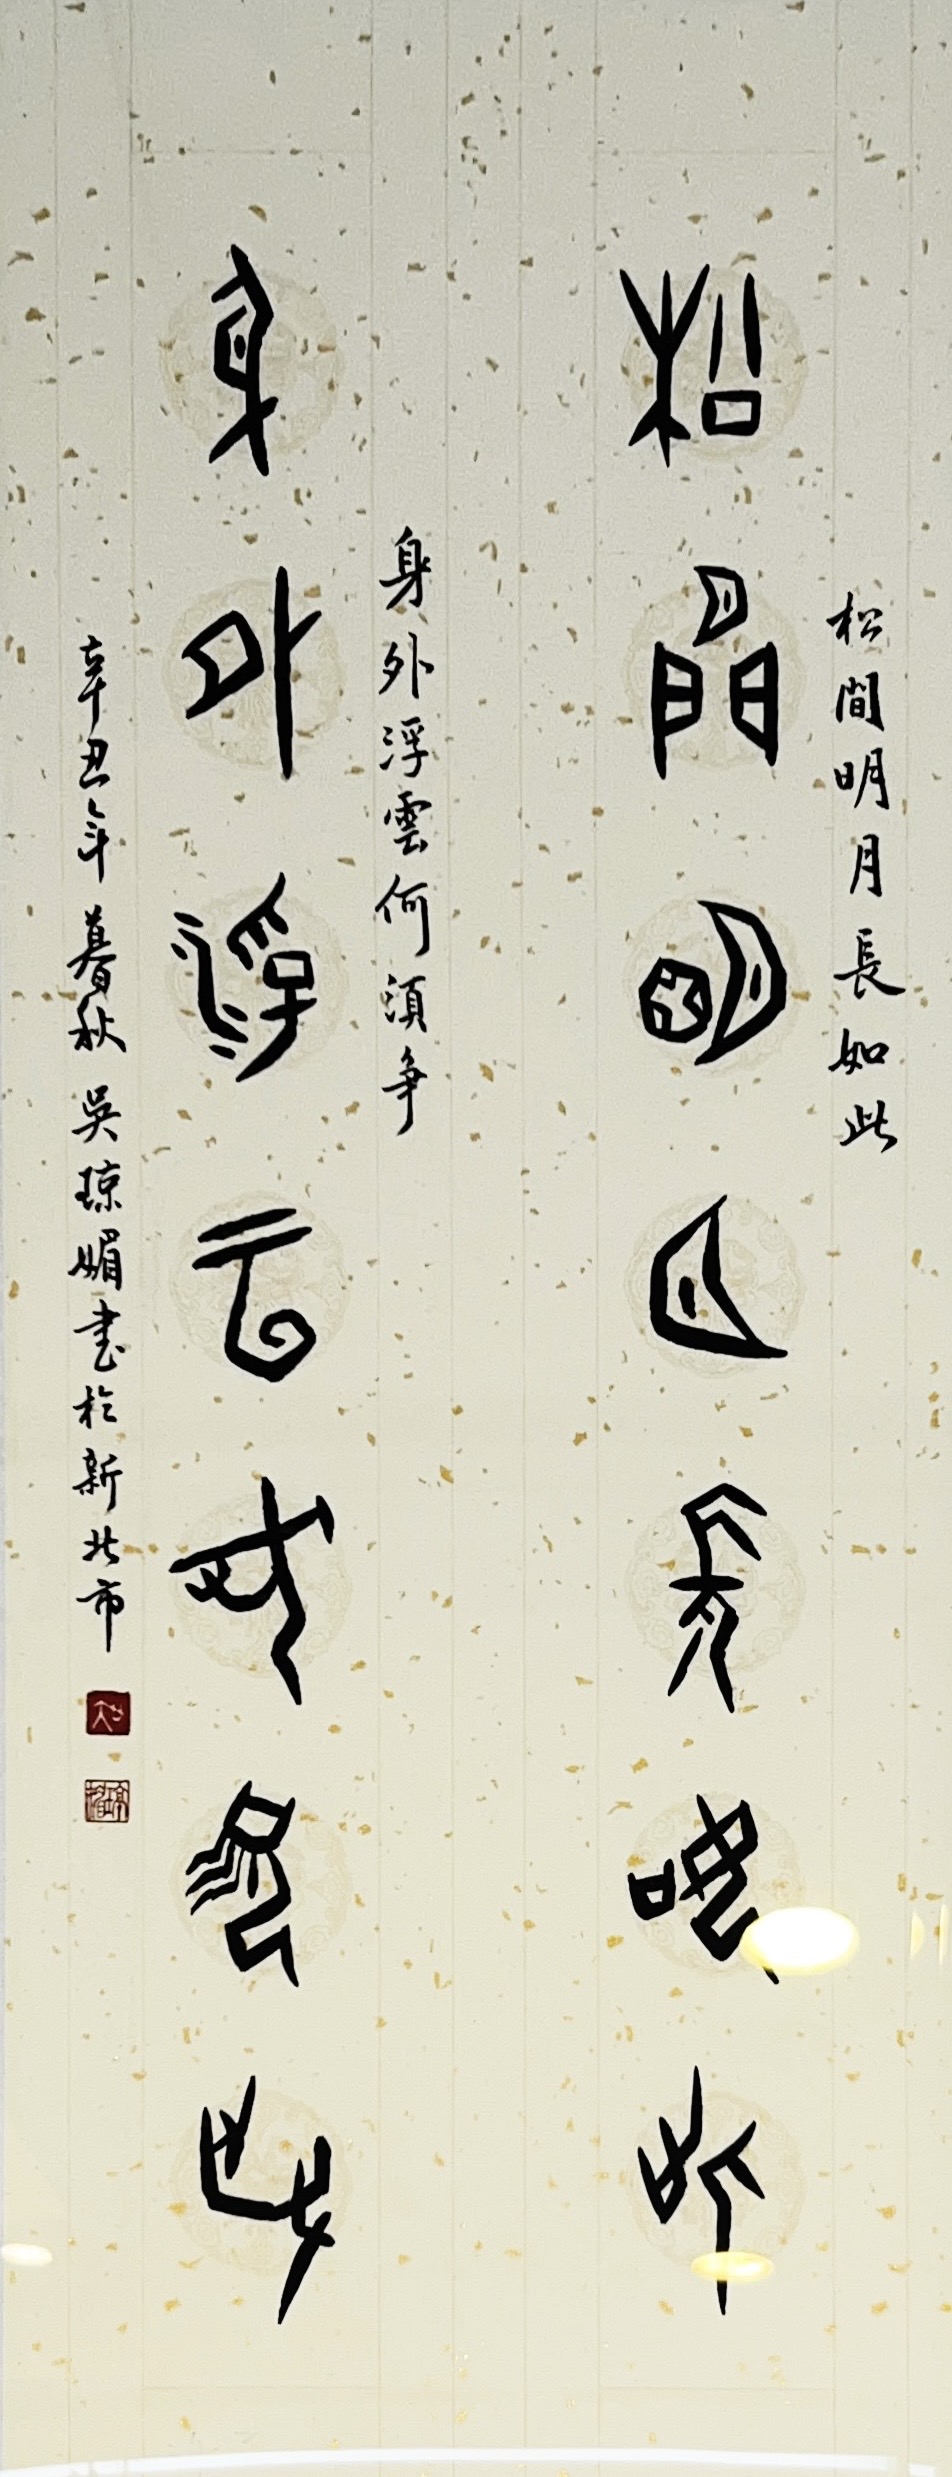 松間明月長如此
松間明月長如此
身外浮雲何須爭
身外浮云何須爭
辛丑年暮秋吳琼媚書於新北市